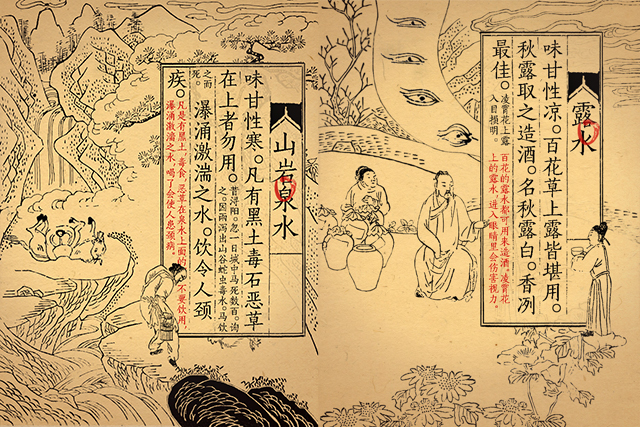 露水
味甘性凉。百花草上露皆堪用。
秋露取之造酒。名秋露白。香冽
最佳。
凌霄花上露
入目损明。
百花的露水都可用来造酒。凌霄花
上的露水，进入眼睛里会伤害视力。
山岩泉水
味甘性寒。凡有黑土毒石恶草
在上者勿用。
昔浔阳。忽一日城中马死数百。询
之。因雨泻出山谷蛇虫毒水。马饮
之而
死。
瀑涌激湍之水。饮令人颈
疾。
凡是有黑土、毒食、恶草在泉水上面的，不要饮用，
瀑涌激湍之水，喝了会使人患颈病。